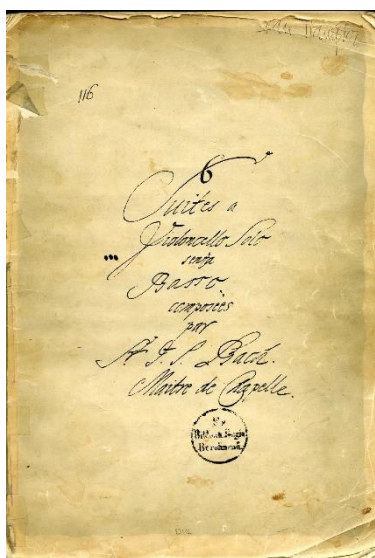 116
6
Suites a
Violoncello Solo
senza
Basso.
composées
par
Sr. J. S. Bach.
Maitre de Chapelle.
Ex
Biblioth. Regia
Berolinensi.